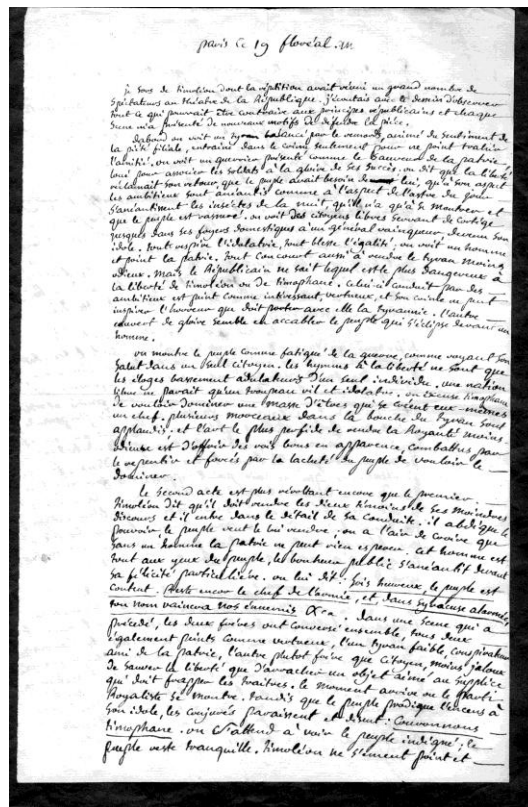 paris ce 19 floréal.
je sors de timoléon dont la répétition avait réuni un grand nombre de
spectateurs au théâtre de la République. j'écoutais avec le dessein d'observer
tout ce qui pourrait être contraire aux principes républicains et chaque
scene m'a présenté de nouveaux motifs de défendre la pièce.
dabord on voit un tyran balancé par le remords, animé du sentiment de
la piété filiale, entrainé dans le crime seulement pour ne point trahir
l'amitié. on voit un guerrier présenté comme le sauveur de la patrie,
loué pour associer les soldats à la gloire de ses succès. on dit que la liberté
réclamait son retour, que le peuple avait besoin de lui, qu'à son aspect
les ambitieux sont anéantis comme à l'aspect de l'astre du jour
s'anéantissent les insectes de la nuit, qu'il n'a qu'à se montrer et
que le peuple est rassuré. on voit des citoyens libres servant de cortège
jusques dans ses foyers domestiques à un général vainqueur devenu son
idole. tout respire l'idolatrie, tout blesse l'égalité. on voit un homme
et point la patrie. tout concourt aussi à rendre le tyran moins
odieux. mais le Républicain ne sait lequel est le plus dangereux à
la liberté de timoléon ou de timophane. celui-ci conduit par des
ambitieux est peint comme intéressant, vertueux, et son crime ne peut
inspirer l'horreur que doit porter avec elle la tyrannie. l'autre
couvert de gloire semble en accabler le peuple qui s'éclipse devant un
homme.
on montre le peuple comme fatigué de la guerre, comme voyant son
salut dans un seul citoyen. les hymnes à la liberté ne sont que
les éloges bassement adulateurs d'un seul individu. une nation
libre ne parait qu'un troupeau vil et idolatre. on excuse timophane
de vouloir dominer une masse d'êtres qui se créent eux-mêmes
un chef. plusieurs morceaux dans la bouche du tyran sont
applaudis. et l'art le plus perfide de rendre la Royauté moins
odieuse est d'offrir des rois bons en apparence, combattus par
le repentir et forcés par la lacheté du peuple de vouloir le
dominer.
Le second acte est plus révoltant encore que le premier.
timoléon dit qu'il doit rendre les dieux témoins de ses moindres
discours et il entre dans le détail de sa conduite. il abdique le
pouvoir le peuple veut le lui rendre. on a l'air de croire que
sans un homme la patrie ne peut rien espérer. cet homme est
tout aux yeux du peuple, le bonheur public s'anéantit devant
sa félicité particulière. on lui dit: Sois heureux, le peuple est
content. Reste encor le chef de l'armée, et dans Syracuse alarmée,
ton nom vaincra nos ennemis &ca. dans une scene qui a
précédé, les deux frères ont conversé ensemble, tous deux
également peints comme vertueux, l'un tyran faible, conspirateur
ami de la patrie, l'autre plutot frère que citoyen, moins jaloux
de sauver la liberté que d'arracher un objet aimé au supplice
qui doit frapper les traitres. le moment arrive ou le parti
Royaliste se montre. tandis que le peuple prodigue l'encens à
son idole, les conjurés paraissent et disent: Couronnons
timophane. on s'attend à voir le peuple indigné; le
peuple reste tranquille. timoléon ne s'émeut point et